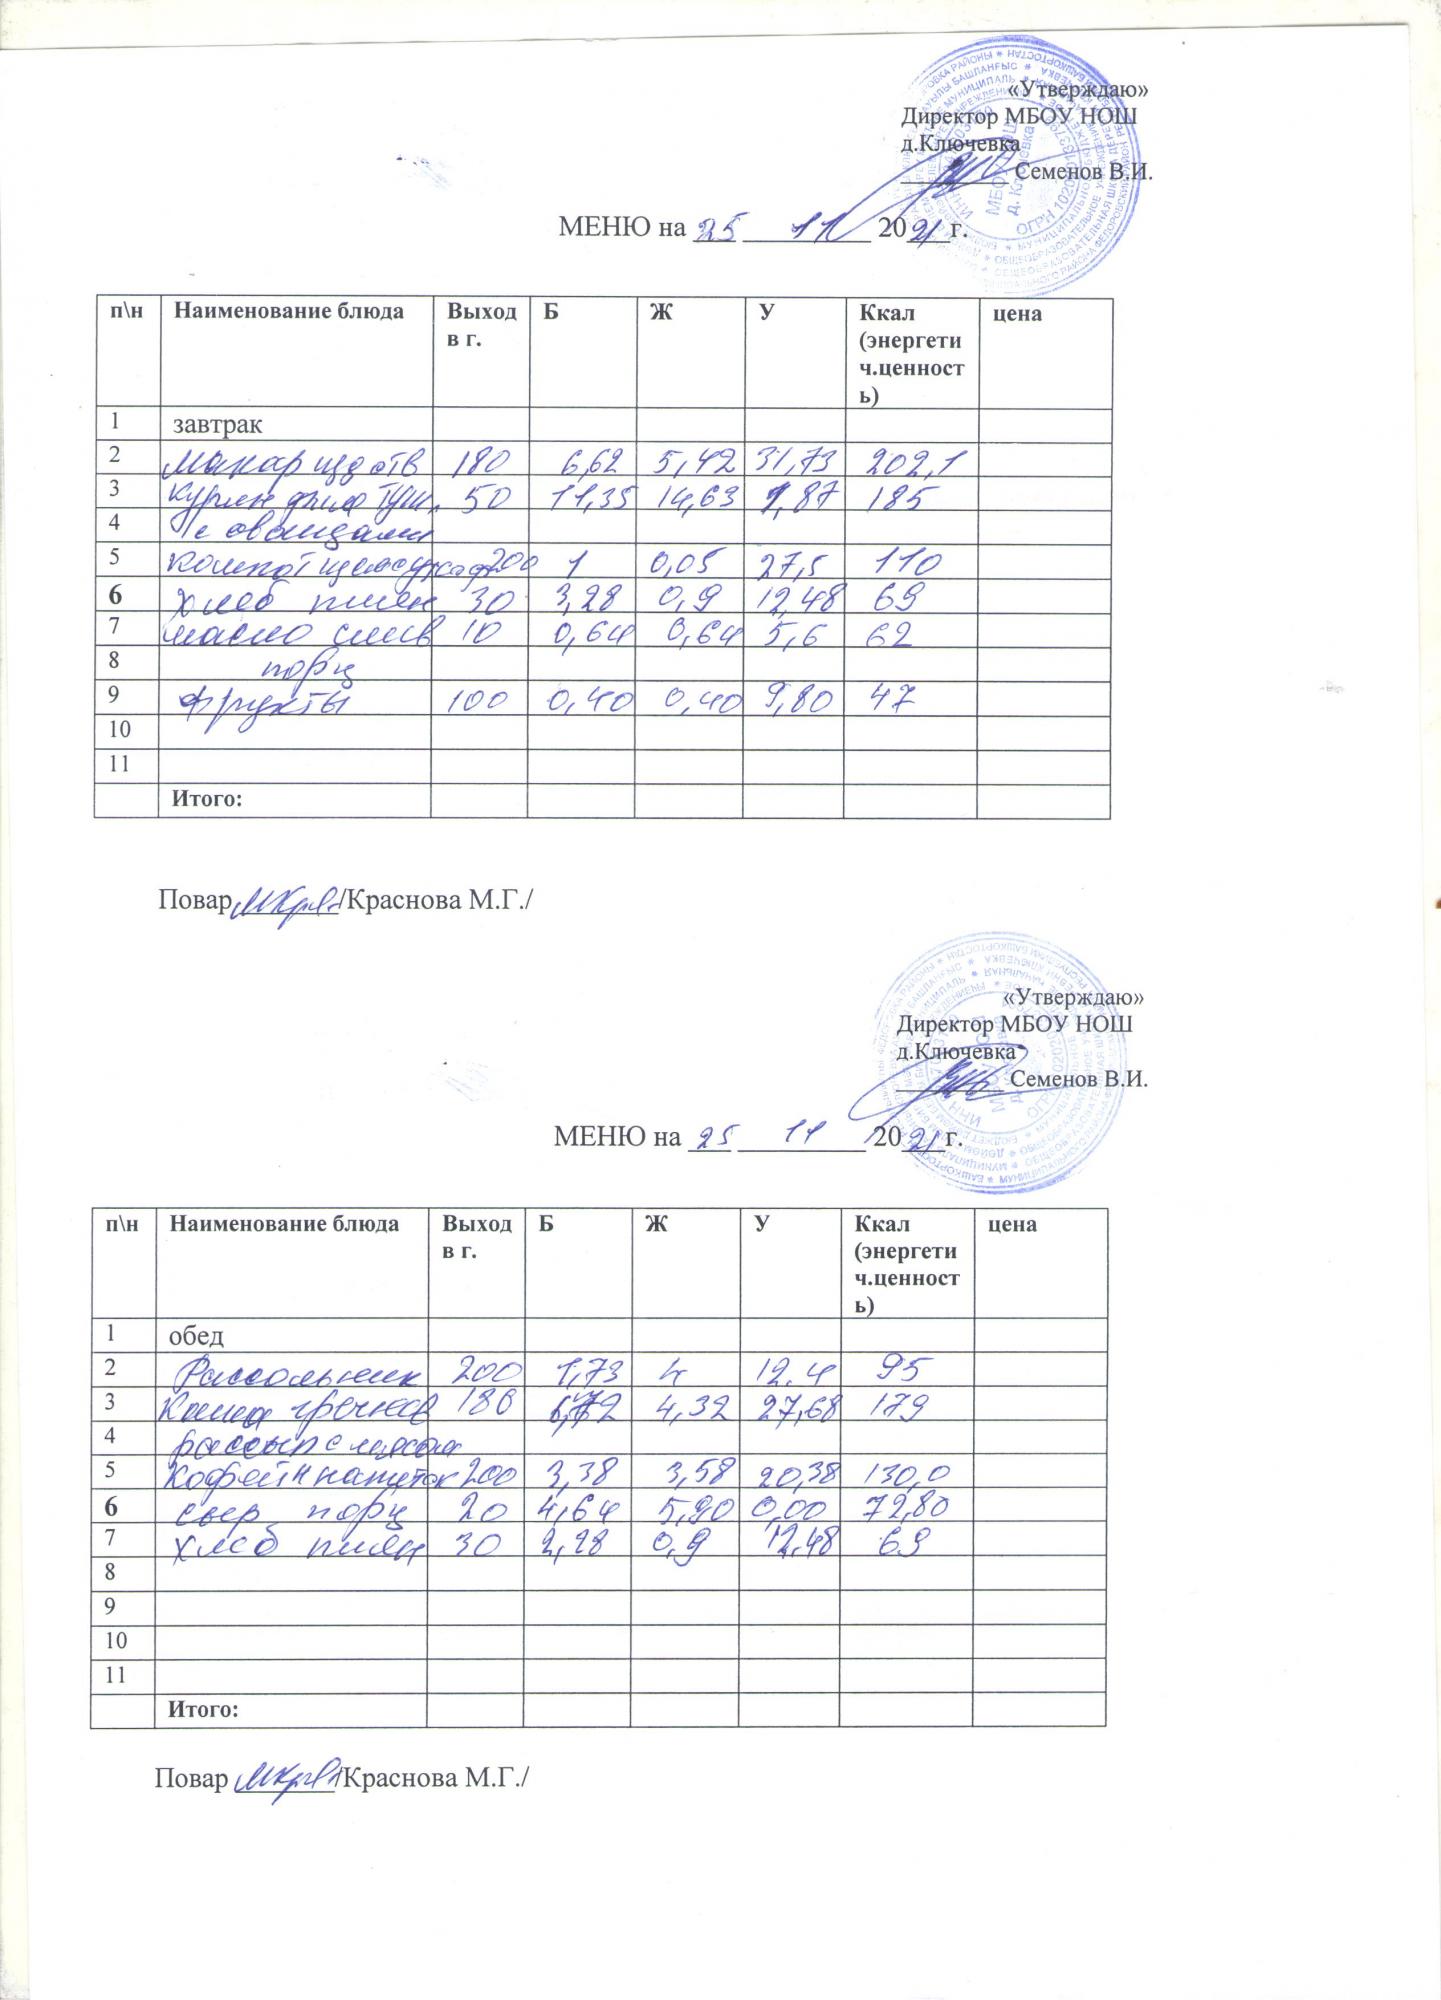 «Утверждаю»
Директор МБОУ НОШ
д.Ключевка
Семенов В.И.
МЕНЮ на 25 11 2021г.
п\н Наименование блюда Выход в г. Б Ж У Ккал (энергетич.ценность) цена
1 завтрак
2 Макар изд отв 180 6,62 5,42 31,73 202,1
3 Курин филе туш. 50 11,35 14,63 1,87 185
4 с овощами
5 компот 200 1 0,05 27,5 110
6 хлеб пшен 30 3,28 0,9 12,48 69
7 масло слив 10 0,64 0,64 5,6 62
8 порц
9 фрукты 100 0,40 0,40 9,80 47
10
11
Итого:
Повар /Краснова М.Г./
«Утверждаю»
Директор МБОУ НОШ
д.Ключевка
Семенов В.И.
МЕНЮ на 25 11 2021г.
п\н Наименование блюда Выход в г. Б Ж У Ккал (энергетич.ценность) цена
1 обед
2 Рассольник 200 1,73 4 12.4 95
3 Каша гречнев 180 4,32 27,68 179
4 рассып с мясом
5 Кофейн напиток 200 3,38 3,58 20,38 130,0
6 сыр порц 20 4,64 5,90 0,00 72,80
7 хлеб пшен 30 2,28 0,9 12,48 69
8
9
10
11
Итого:
Повар /Краснова М.Г./